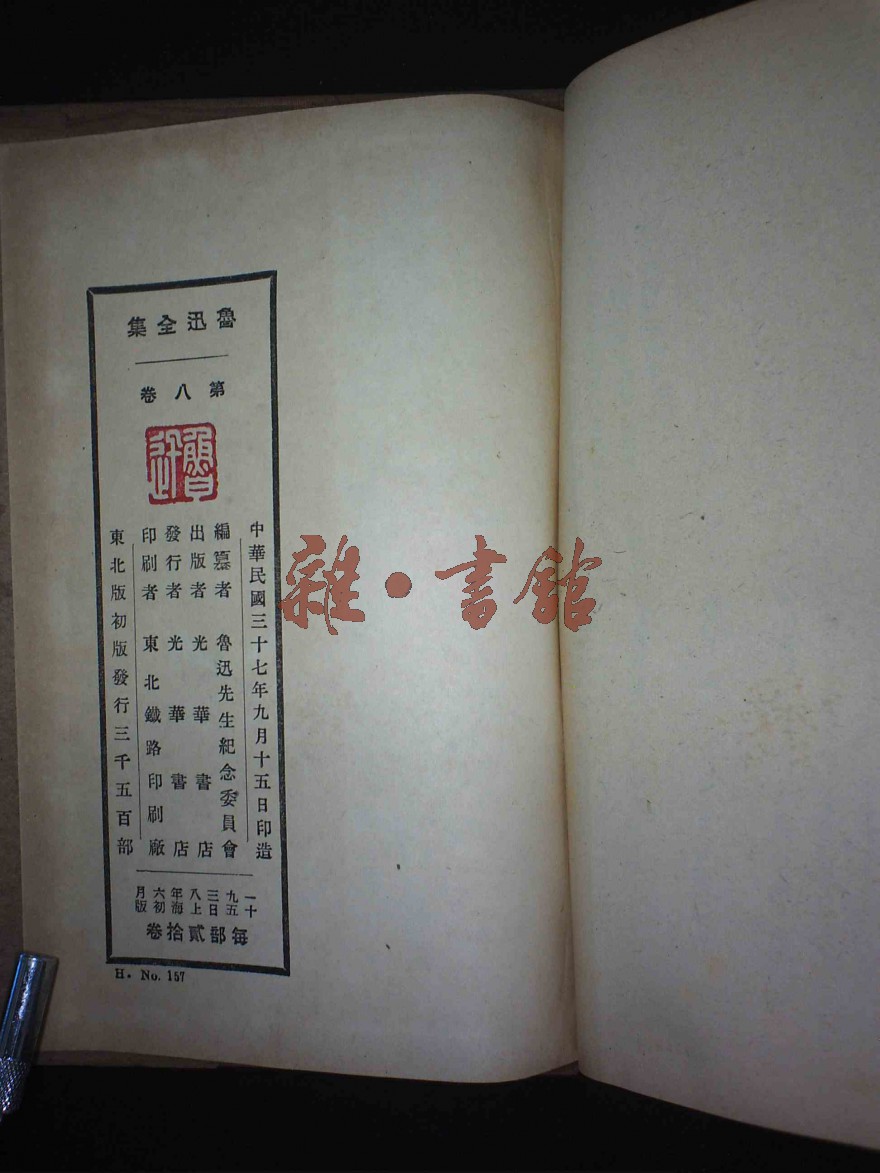 魯迅全集
第八卷
魯迅
中華民國三十七年九月十五日印造
編纂者 魯迅先生紀念委員會
出版者 光華書店
發行者 光華書店
印刷者 東北鐵路印刷廠
東北版初版發行三千五百部
一九三八年六月
十五日上海初版
每部貳拾卷
H. No. 157
雜·書館